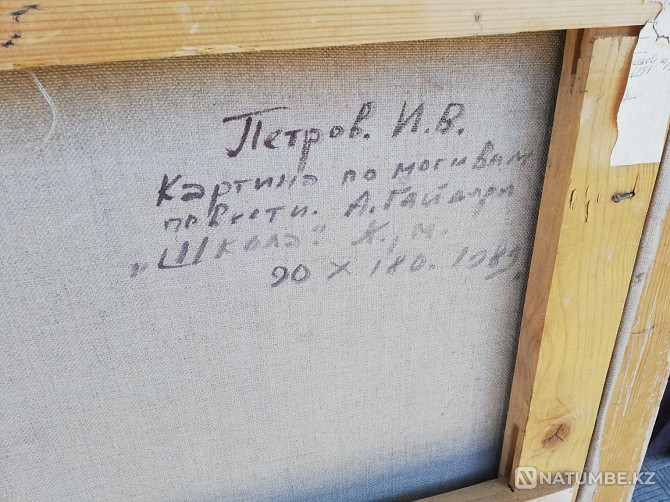 Петров. И.В.
Картина по мотивам
повести. А. Гайдара
„Школа" Х., м.
90 X 180. 1989
NATUMBE.KZ